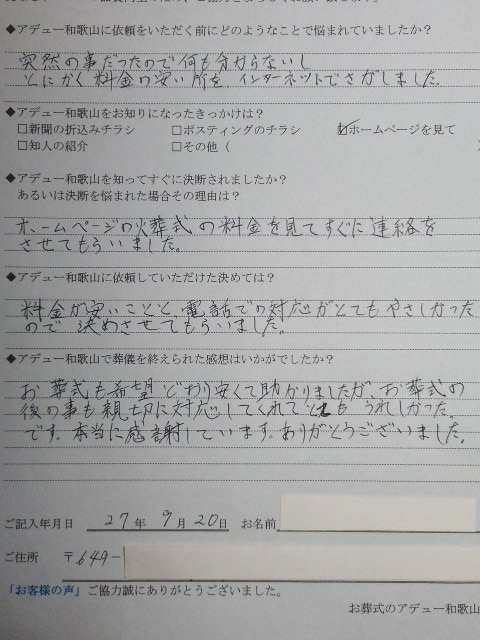 ◆アデュー和歌山に依頼をいただく前にどのようなことで悩まれていましたか？
突然の事だったので何も分からないし
とにかく料金の安い所を、インターネットでさがしました。
◆アデュー和歌山をお知りになったきっかけは？
□新聞の折込みチラシ □ポスティングのチラシ ☑ホームページを見て
□知人の紹介 □その他（
◆アデュー和歌山を知ってすぐに決断されましたか？
あるいは決断を悩まれた場合その理由は？
ホームページの火葬式の料金を見てすぐに連絡を
させてもらいました。
◆アデュー和歌山に依頼していただけた決めては？
料金が安いことと、電話での対応がとてもやさしかった
ので 決めさせてもらいました。
◆アデュー和歌山で葬儀を終えられた感想はいかがでしたか？
お葬式も希望どおり安くて助かりましたが、お葬式の
後の事も親切に対応してくれてとてもうれしかった。
です。本当に感謝しています。ありがとうございました。
ご記入年月日 27年 9月20日 お名前
ご住所 〒649-
「お客様の声」ご協力誠にありがとうございました。
お葬式のアデュー和歌山